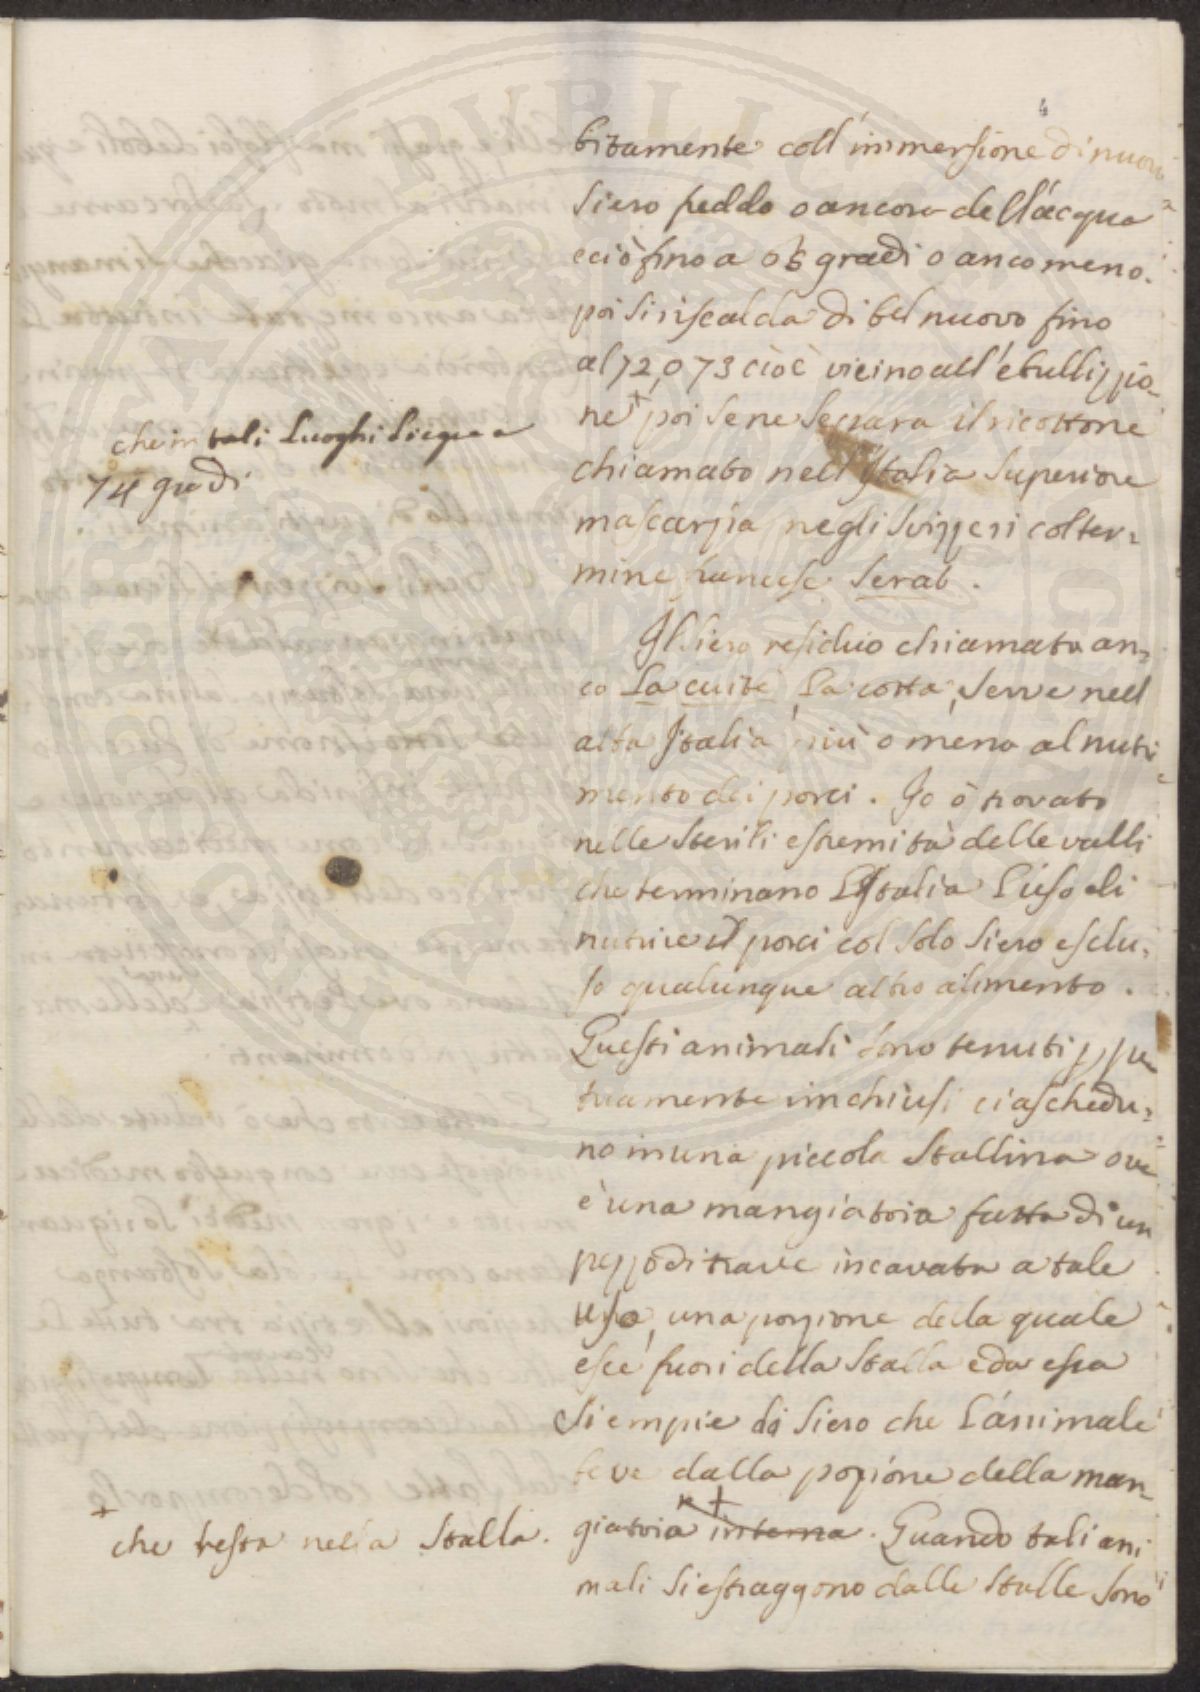 4
bitamente coll'immersione di nuovo
siero freddo o ancora dell'acqua
e ciò fino a 05 gradi o anco meno.
poi si riscalda di bel nuovo fino
al 72, o 73 cioè vicino all'ebullizzio-
ne + poi se ne separa il ricottone
chiamato nell'Italia superiore
mascarpia negli Svizzeri col ter=
mine francese Serat.
Il siero residuo chiamato an=
co La cuite, La cotta, serve nell
alta Italia più o meno al nutri
mento dei porci. Io ò trovato
nelle sterili estremità delle valli
che terminano L'Italia L'uso di
nutrire i porci col solo siero esclu=
so qualunque altro alimento.
Questi animali sono tenuti perpe
tuamente inchiusi ciaschedu=
no in una piccola Stallina ove
è una mangiatoia fatta di un
pezzo di trave incavata a tale
uso, una porzione della quale
esce fuori della Stalla e da essa
si empie di siero che L'animale
beve dalla porzione della man-
giatoia + interna. Quando tali ani
mali si estraggono dalle stalle sono
che in tali Luoghi segue a
74 gradi
+
che resta nella Stalla.